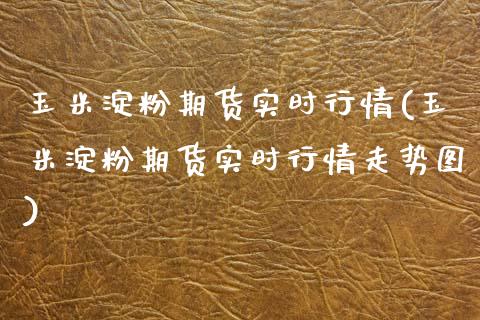 玉米淀粉期货实时行情(玉
米淀粉期货实时行情走势图
)